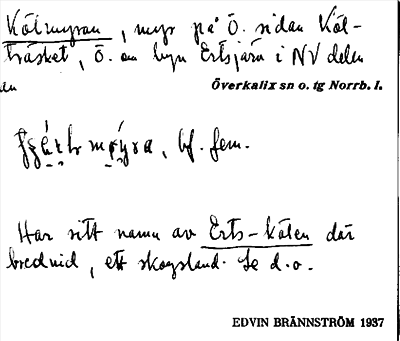 Kölmyran, myr på Ö. sidan Köl-
träsket, Ö. om byn Ertsjärv i NV delen
Överkalix sn o. tg Norrb. l.
bf. fem.
Har sitt namn av Erts-kölen där
bredvid, ett skogsland. Se d.o.
EDVIN BRÄNNSTRÖM 1937